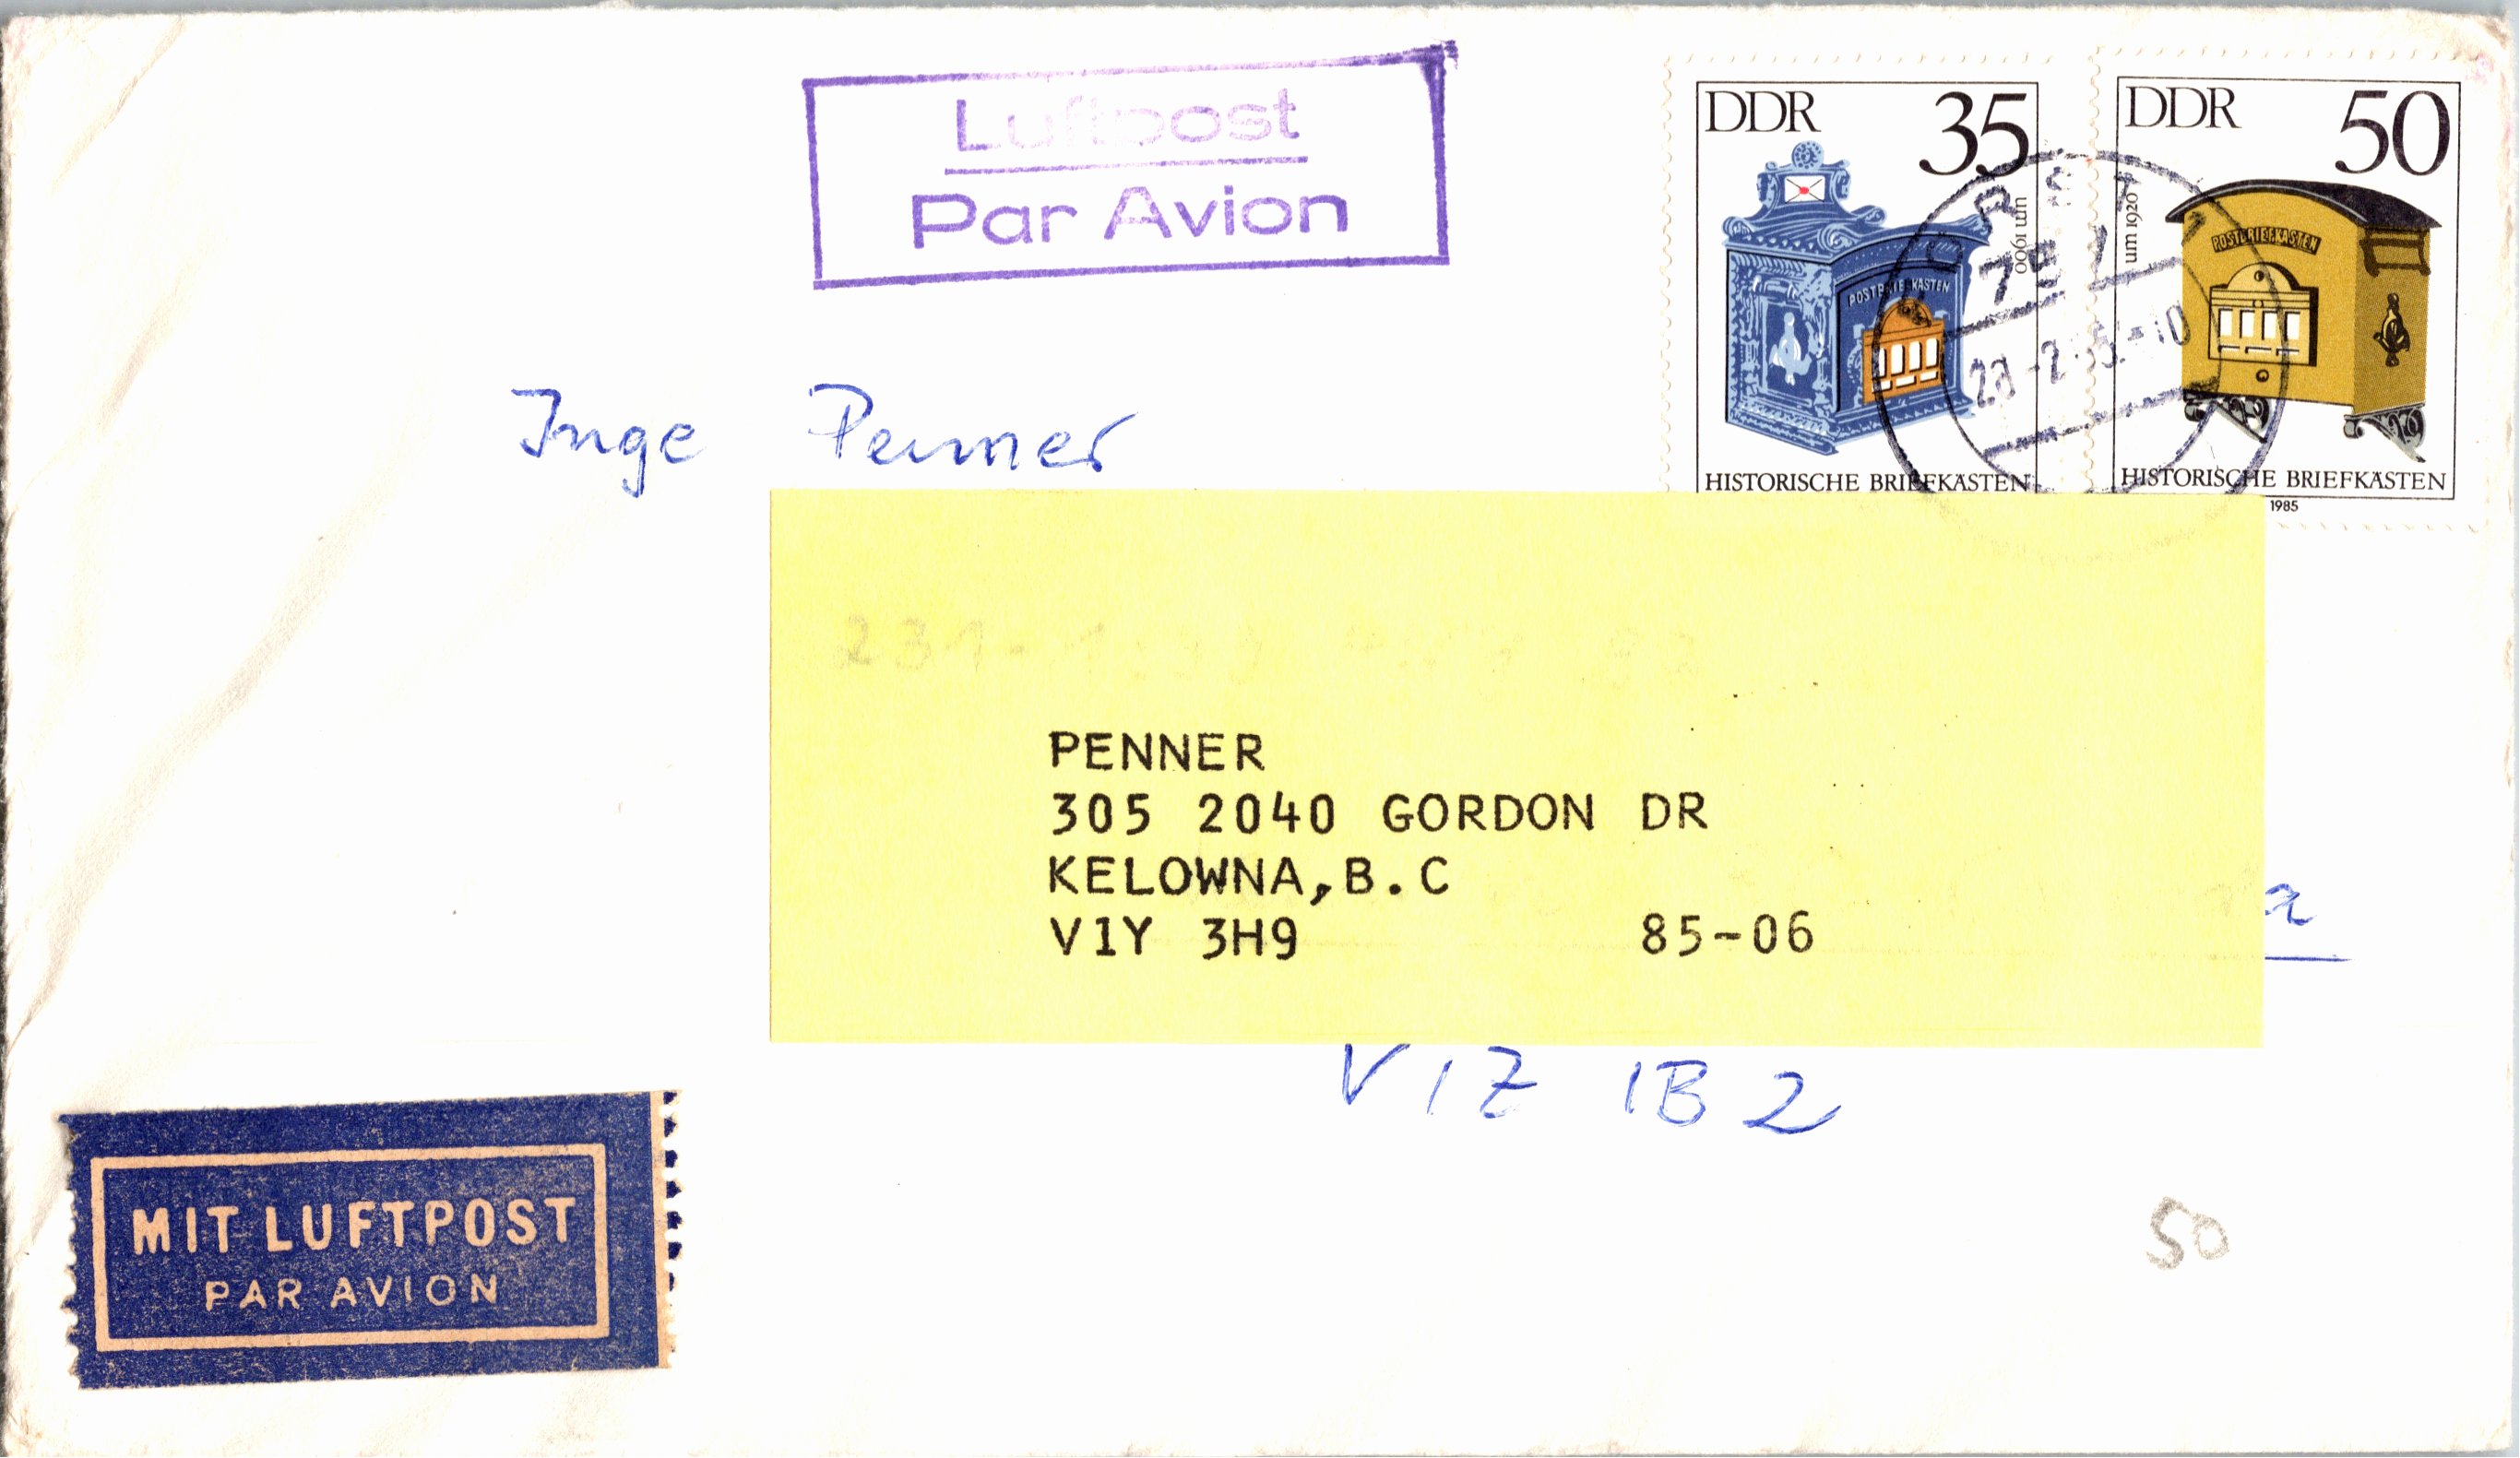 Luftpost
Par Avion
DDR 35
um 1900
POSTBRIEFKASTEN
HISTORISCHE BRIEFKÄSTEN
DDR 50
um 1920
POSTBRIEFKASTEN
HISTORISCHE BRIEFKÄSTEN
1985
Inge Penner
PENNER
305 2040 GORDON DR
KELOWNA, B.C
V1Y 3H9 85-06
a
V1Z 1B2
MIT LUFTPOST
PAR AVION
50